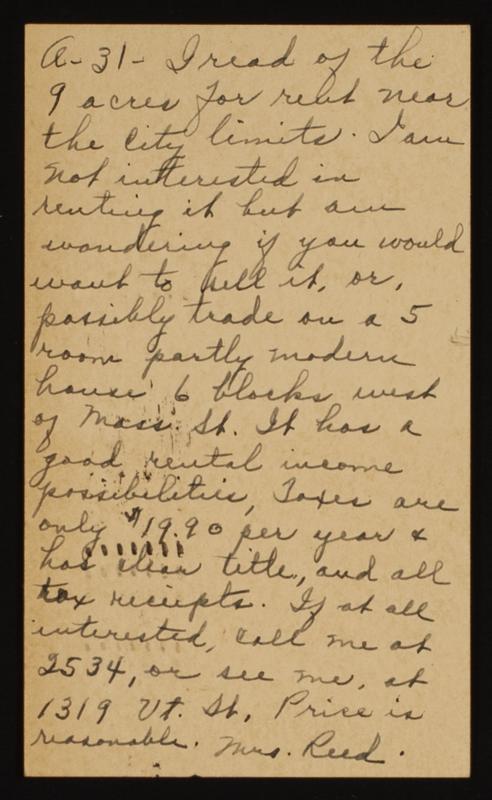 A-31- I read of the
9 acres for rent near
the city limits. I am
not interested in
renting it but am
wondering if you would
want to sell it, or,
possibly trade on a 5
room partly modern
house 6 blocks west
of Mass. St. It has a
good rental income
possibilities, Taxes are
only $19.90 per year &
has clear title, and all
tax receipts. If at all
interested, call me at
2534, or see me, at
1319 Vt. St. Price is
reasonable. Mrs. Reed.